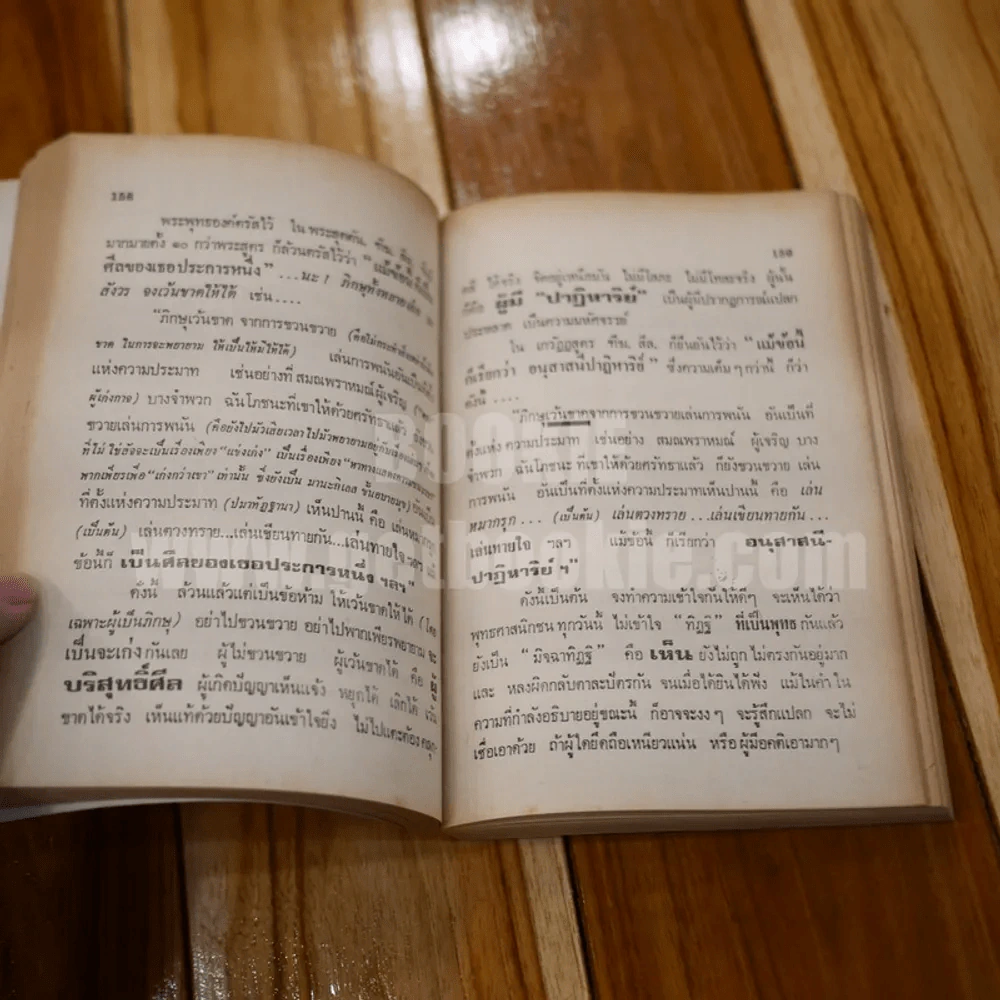 158
พระพุทธองค์ตรัสไว้ ใน พระสุตตัน. ฑีฆ. สีล.
มากมายตั้ง ๑๐ กว่าพระสูตร ก็ล้วนตรัสไว้ว่า "แม้ข้อนี้ก็เป็น
ศีลของเธอประการหนึ่ง" ...นะ ! ภิกษุทั้งหลาย
สังวร จงเว้นขาดให้ได้ เช่น....
"ภิกษุเว้นขาด จากการขวนขวาย
ขาด ในการจะพยายาม ให้เป็นให้มีให้ได้) เล่นการพนันอันเป็นที่ตั้ง
แห่งความประมาท เช่นอย่างที่ สมณพราหมณ์ผู้เจริญ
ผู้เก่งกาจ) บางจำพวก ฉันโภชนะที่เขาให้ด้วยศรัทธาแล้ว
ขวายเล่นการพนัน (คือยังไปมัวเสียเวลา ไปมัวพยายามอยู่กับเรื่อง
ที่ไม่ใช่สัจจะเป็นเรื่องเพียง "แข่งเก่ง" เป็นเรื่องเพียง
พากเพียรเพื่อ "เก่งกว่าเขา" เท่านั้น ซึ่งยังเป็น มานะกิเลส ขั้นอบายมุข) อันเป็น
ที่ตั้งแห่งความประมาท (ปมาทัฏฐานา) เห็นปานนี้ คือ เล่นหมากรุก
(เป็นต้น) เล่นตวงทราย...เล่นเขียนทายกัน...เล่นทายใจ ฯลฯ
ข้อนี้ก็ เป็นศีลของเธอประการหนึ่ง ฯลฯ"
ดังนี้ ล้วนแล้วแต่เป็นข้อห้าม ให้เว้นขาดให้ได้ (โดย
เฉพาะผู้เป็นภิกษุ) อย่าไปขวนขวาย อย่าไปพากเพียรพยายาม จะ
เป็นจะเก่งกันเลย ผู้ไม่ขวนขวาย ผู้เว้นขาดได้ คือ ผู้
บริสุทธิ์ศีล ผู้เกิดปัญญาเห็นแจ้ง หยุดได้ เลิกได้ เว้น
ขาดได้จริง เห็นแท้ด้วยปัญญาอันเข้าใจยิ่ง ไม่ไปแตะต้อง คลุก-
ได้จริง จิตอยู่เหนือมัน ไม่มีโลภะ ไม่มีโทสะจริง ผู้นั้น
ก็คือ ผู้มี "ปาฏิหาริย์" เป็นผู้มีปรากฏการณ์แปลก
ประหลาด เป็นความมหัศจรรย์
ใน เกวัฏฏสูตร ฑีฆ. สีล. ก็ยืนยันไว้ว่า "แม้ข้อนี้
ก็เรียกว่า อนุสาสนีปาฏิหาริย์" ซึ่งความเต็ม ๆ กว่านี้ ก็ว่า
ดังนี้ ....
"ภิกษุเว้นขาดจากการขวนขวายเล่นการพนัน อันเป็นที่
ตั้งแห่ง ความประมาท เช่นอย่าง สมณพราหมณ์ ผู้เจริญ บาง
จำพวก ฉันโภชนะ ที่เขาให้ด้วยศรัทธาแล้ว ก็ยังขวนขวาย เล่น
การพนัน อันเป็นที่ตั้งแห่งความประมาทเห็นปานนี้ คือ เล่น
หมากรุก... (เป็นต้น) เล่นตวงทราย ...เล่นเขียนทายกัน...
เล่นทายใจ ฯลฯ แม้ข้อนี้ ก็เรียกว่า อนุสาสนี-
ปาฏิหาริย์ ฯ"
ดังนี้เป็นต้น จงทำความเข้าใจกันให้ดีๆ จะเห็นได้ว่า
พุทธศาสนิกชน ทุกวันนี้ ไม่เข้าใจ "ทิฏฐิ" ที่เป็นพุทธ กันแล้ว
ยังเป็น "มิจฉาทิฏฐิ" คือ เห็น ยังไม่ถูก ไม่ตรงกันอยู่มาก
และ หลงผิดกลับตาละปัตรกัน จนเมื่อได้ยินได้ฟัง แม้ในคำ ใน
ความที่กำลังอธิบายอยู่ขณะนี้ ก็อาจจะงง ๆ จะรู้สึกแปลก จะไม่
เชื่อเอาด้วย ถ้าผู้ใดยึดถือเหนียวแน่น หรือ ผู้มีอคติเอามากๆ
www.getbookie.com